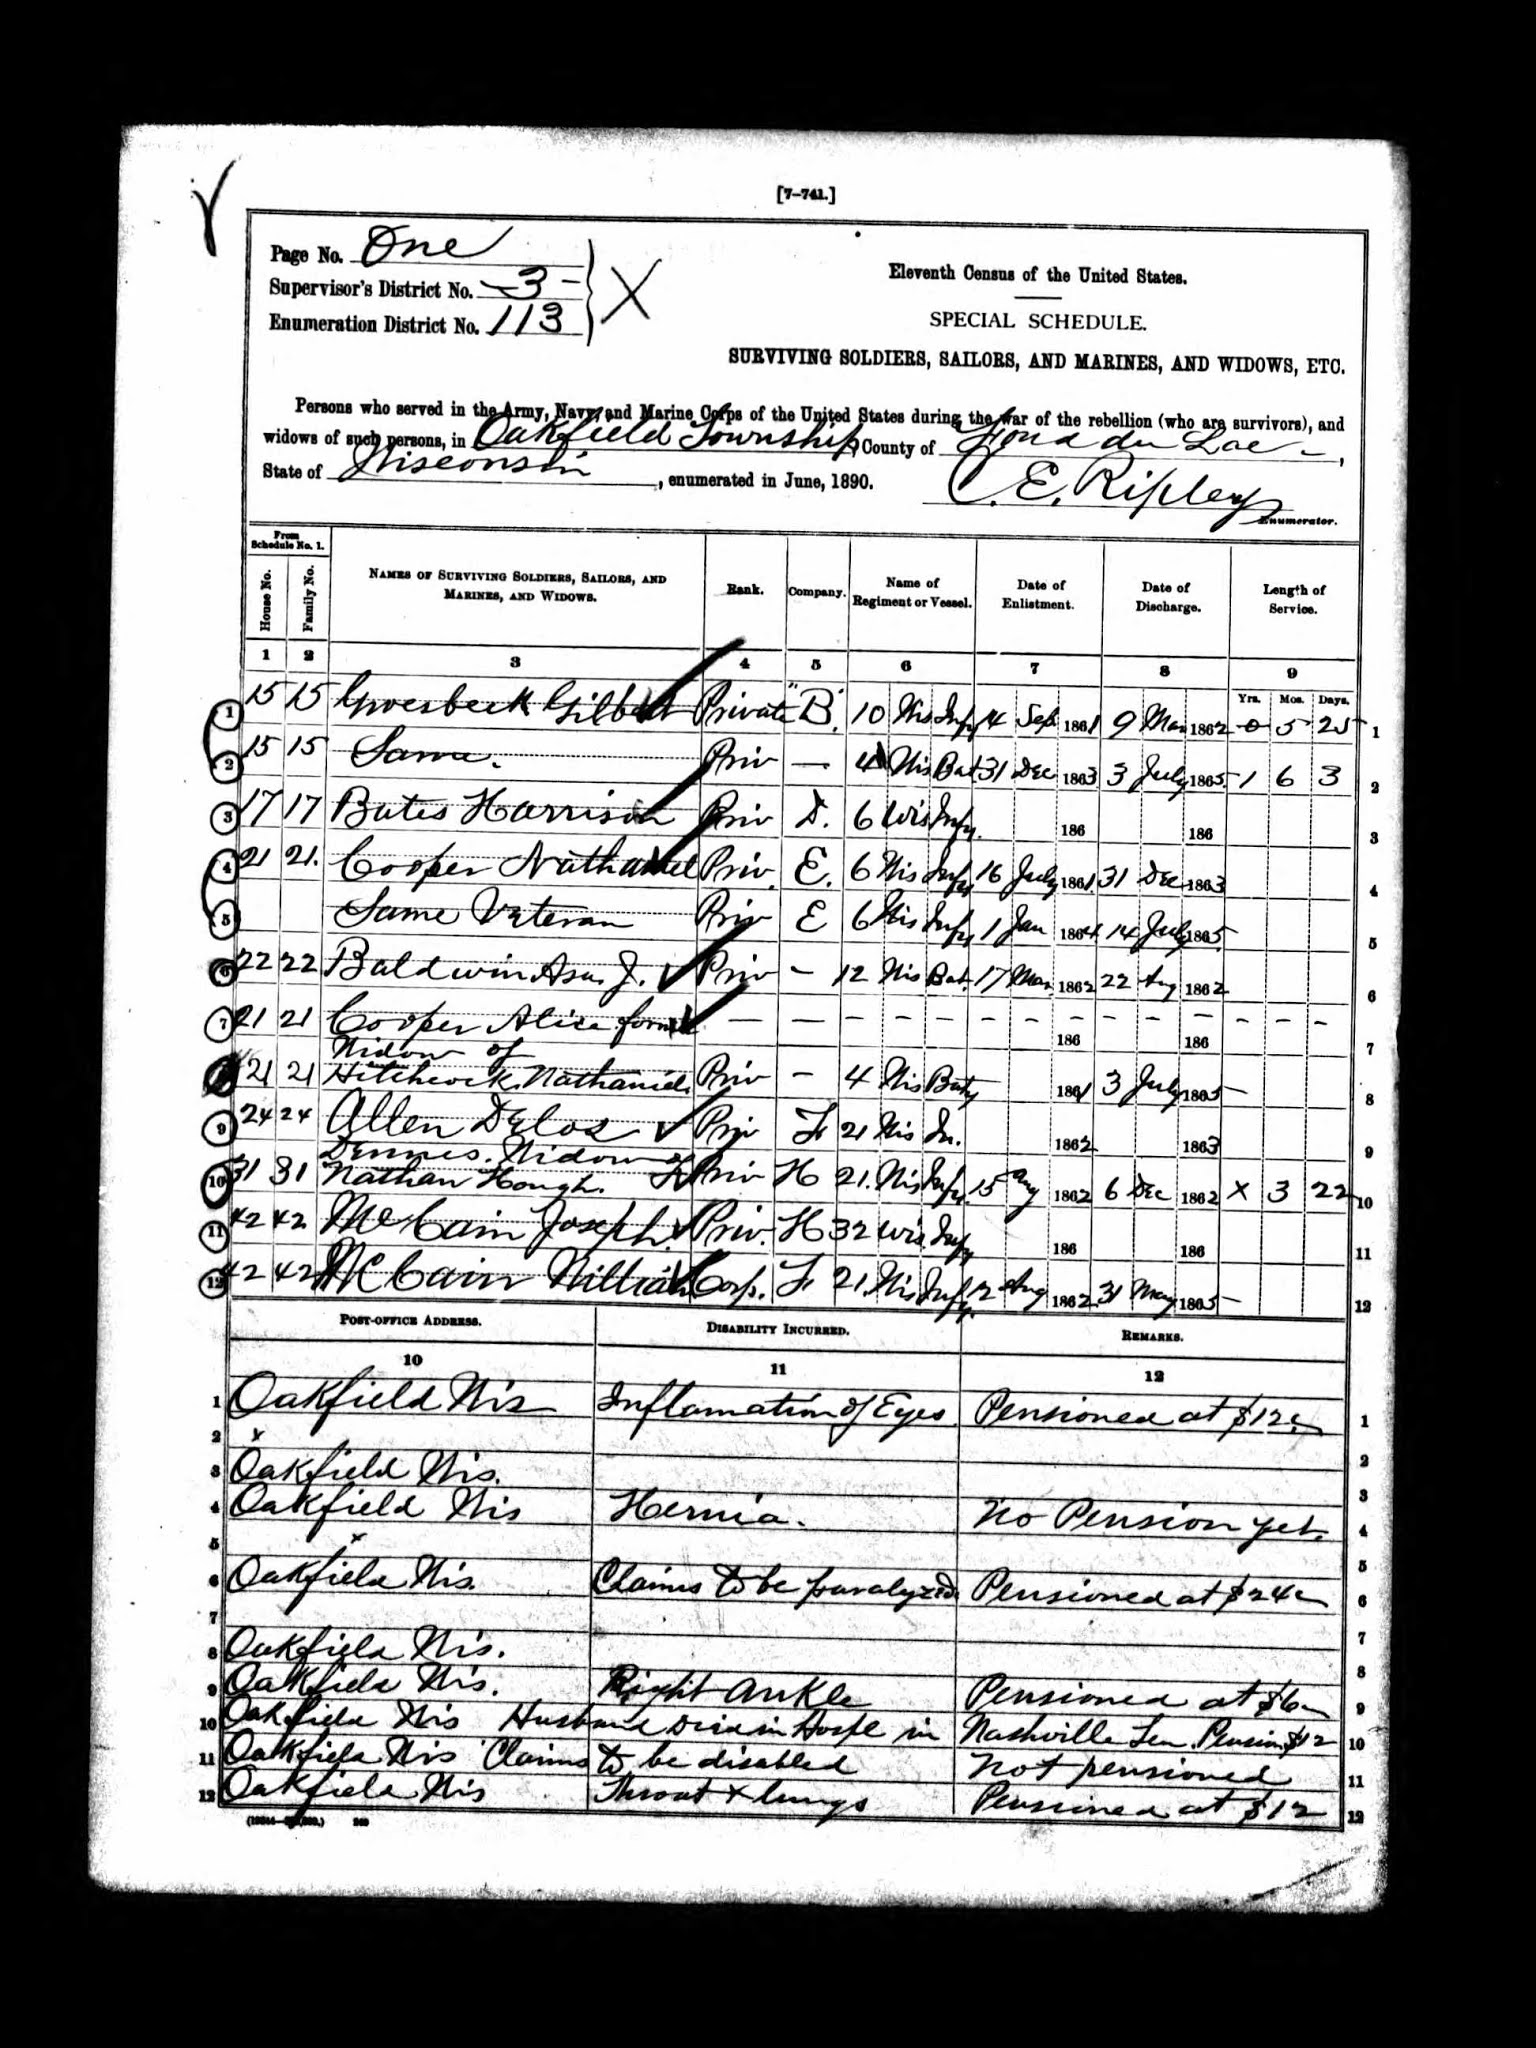 [7-741.]
Page No. One
Supervisor's District No. 3
Enumeration District No. 113
X
Eleventh Census of the United States.
SPECIAL SCHEDULE.
SURVIVING SOLDIERS, SAILORS, AND MARINES, AND WIDOWS, ETC.
Persons who served in the Army, Navy, and Marine Corps of the United States during the war of the rebellion (who are survivors), and
widows of such persons, in Oakfield Township, County of Fond du Lac,
State of Wisconsin, enumerated in June, 1890. C. E. Ripley
Enumerator.
From Schedule No. 1.
House No. Family No. NAMES OF SURVIVING SOLDIERS, SAILORS, AND MARINES, AND WIDOWS. Rank. Company. Name of Regiment or Vessel. Date of Enlistment. Date of Discharge. Length of Service.
1 2 3 4 5 6 7 8 9
Yrs. Mos. Days.
1 15 15 Groesbeck Gilbert Private "B" 10 Wis Infy 14 Sep 1861 9 Mar 1862 0 5 25 1
2 15 15 Same. Priv — 4 Wis Bat 31 Dec 1863 3 July 1865 1 6 3 2
3 17 17 Bates Harrison Priv D. 6 Wis Infy. 186 186 3
4 21 21. Cooper Nathaniel Priv. E. 6 Wis Infy 16 July 1861 31 Dec 1863 4
5 Same Veteran Priv E 6 Wis Infy 1 Jan 1864 14 July 1865 5
6 22 22 Baldwin Asa J. Priv - 12 Wis Bat. 17 Mar 1862 22 Aug 1862 6
7 21 21 Cooper Alice form — — — — — — — 186 — — 186 — — — 7
Widow of
21 21 Hitchcock Nathaniel Priv - 4 Wis Baty 1861 3 July 1865 - 8
9 24 24 Allen Delos Priv F 21 Wis In. 1862 1863 9
Dennis. Widow of
10 31 31 Nathan Hough. Priv H 21. Wis Infy. 15 Aug 1862 6 Dec 1862 x 3 22 10
11 42 42 McCain Joseph. Priv. H 32 Wis Infy 186 186 11
12 42 42 McCain William Corp. F 21. Wis Infy. 12 Aug 1862 31 May 1865 - 12
POST-OFFICE ADDRESS. DISABILITY INCURRED. REMARKS.
10 11 12
1 Oakfield Wis Inflamation of Eyes Pensioned at $12 1
2 x 2
3 Oakfield Wis. 3
4 Oakfield Wis Hernia. No Pension yet. 4
5 x 5
6 Oakfield Wis. Claims to be paralyzed. Pensioned at $24 6
7 7
8 Oakfield Wis. 8
9 Oakfield Wis. Right Ankle Pensioned at $6 9
10 Oakfield Wis Husband Died in Hospl in Nashville Ten. Pension $12 10
11 Oakfield Wis Claims to be disabled Not pensioned 11
12 Oakfield Wis Throat & lungs Pensioned at $12 12